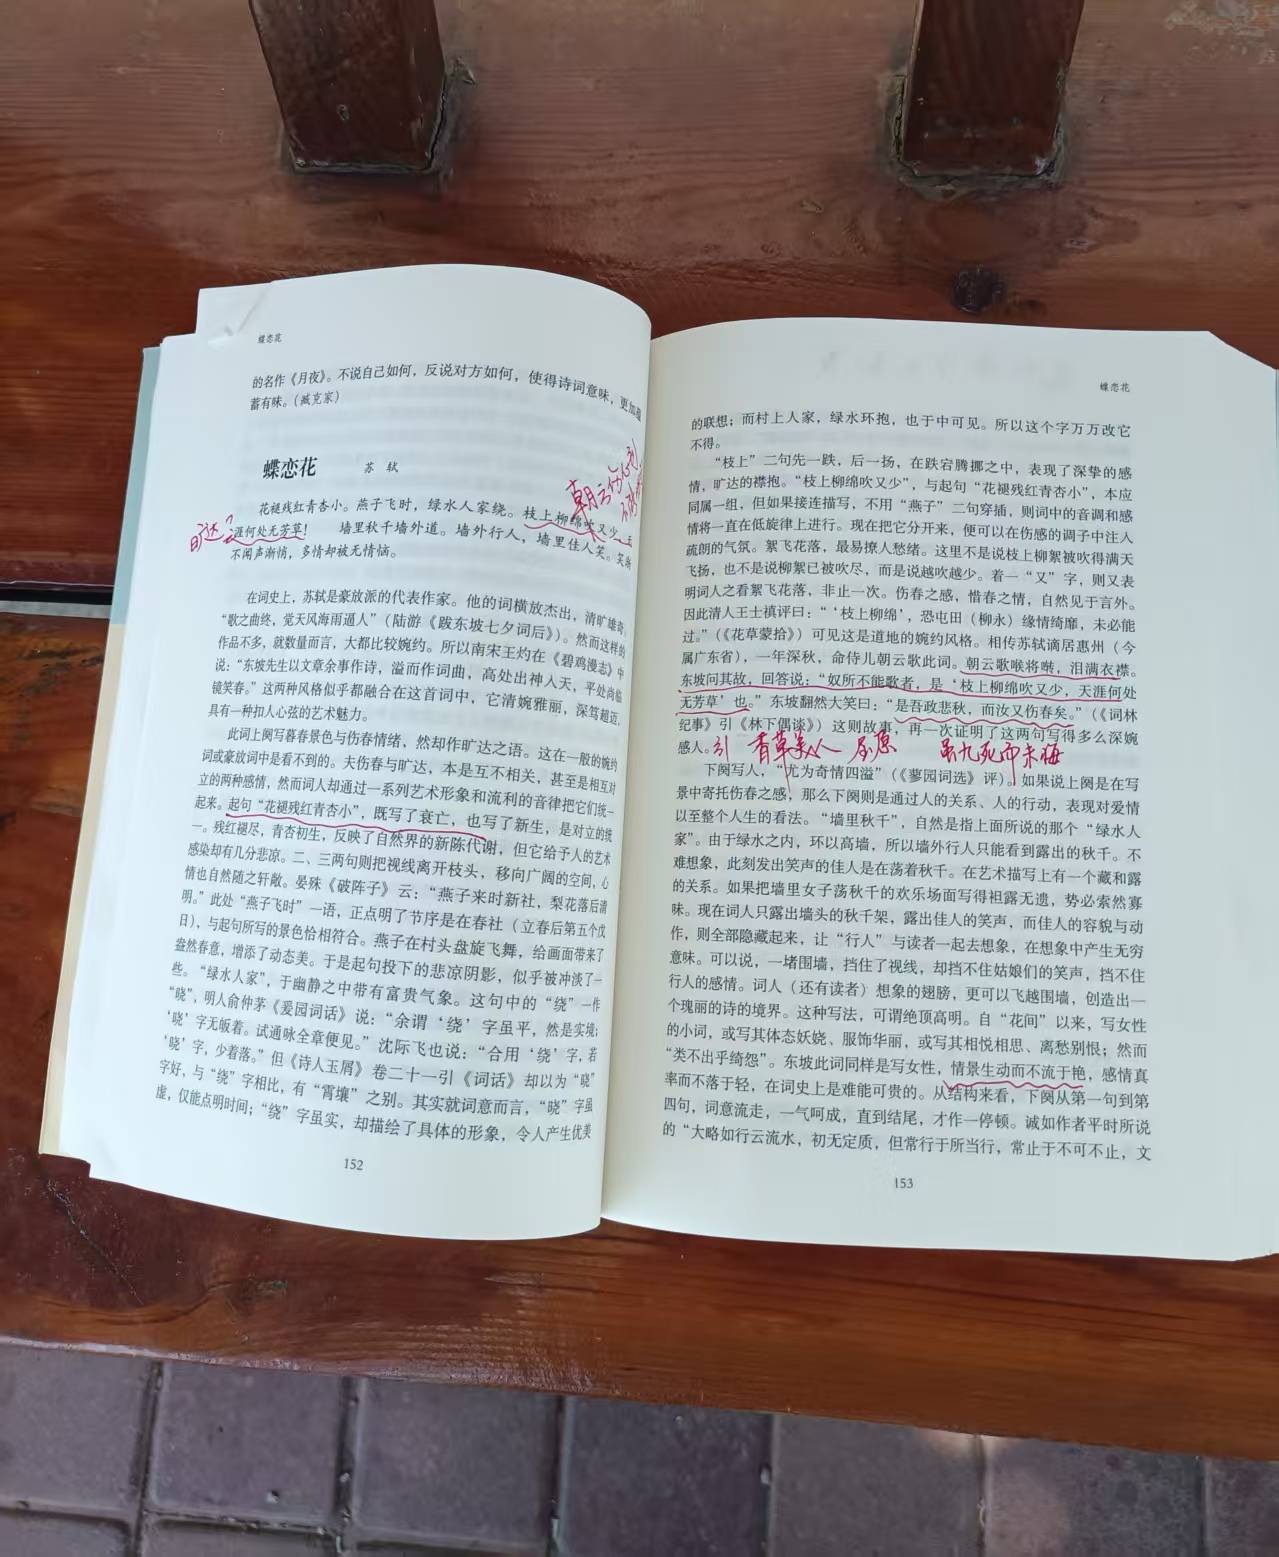 蝶恋花
的名作《月夜》。不说自己如何，反说对方如何，使得诗词意味，更加蕴
蓄有味。（臧克家）
蝶恋花 苏轼
花褪残红青杏小。燕子飞时，绿水人家绕。枝上柳绵吹又少。天
涯何处无芳草！ 墙里秋千墙外道。墙外行人，墙里佳人笑。笑渐
不闻声渐悄，多情却被无情恼。
朝云伤心
旷达？
在词史上，苏轼是豪放派的代表作家。他的词横放杰出，清旷雄奇，
“歌之曲终，觉天风海雨逼人”（陆游《跋东坡七夕词后》）。然而这样的
作品不多，就数量而言，大都比较婉约。所以南宋王灼在《碧鸡漫志》中
说：“东坡先生以文章余事作诗，溢而作词曲，高处出神入天，平处尚临
镜笑春。”这两种风格似乎都融合在这首词中，它清婉雅丽，深笃超迈，
具有一种扣人心弦的艺术魅力。
此词上阕写暮春景色与伤春情绪，然却作旷达之语。这在一般的婉约
词或豪放词中是看不到的。夫伤春与旷达，本是互不相关，甚至是相互对
立的两种感情，然而词人却通过一系列艺术形象和流利的音律把它们统一
起来。起句“花褪残红青杏小”，既写了衰亡，也写了新生，是对立的统
一。残红褪尽，青杏初生，反映了自然界的新陈代谢，但它给予人的艺术
感染却有几分悲凉。二、三两句则把视线离开枝头，移向广阔的空间，心
情也自然随之轩敞。晏殊《破阵子》云：“燕子来时新社，梨花落后清
明。”此处“燕子飞时”一语，正点明了节序是在春社（立春后第五个戊
日），与起句所写的景色恰相符合。燕子在村头盘旋飞舞，给画面带来了
盎然春意，增添了动态美。于是起句投下的悲凉阴影，似乎被冲淡了一
些。“绿水人家”，于幽静之中带有富贵气象。这句中的“绕”一作
“晓”，明人俞仲茅《爰园词话》说：“余谓‘绕’字虽平，然是实境；
‘晓’字无皈着。试通咏全章便见。”沈际飞也说：“合用‘绕’字，若
‘晓’字，少着落。”但《诗人玉屑》卷二十一引《词话》却以为“晓”
字好，与“绕”字相比，有“霄壤”之别。其实就词意而言，“晓”字虽
虚，仅能点明时间；“绕”字虽实，却描绘了具体的形象，令人产生优美
152
蝶恋花
的联想；而村上人家，绿水环抱，也于中可见。所以这个字万万改它
不得。
“枝上”二句先一跌，后一扬，在跌宕腾挪之中，表现了深挚的感
情，旷达的襟抱。“枝上柳绵吹又少”，与起句“花褪残红青杏小”，本应
同属一组，但如果接连描写，不用“燕子”二句穿插，则词中的音调和感
情将一直在低旋律上进行。现在把它分开来，便可以在伤感的调子中注入
疏朗的气氛。絮飞花落，最易撩人愁绪。这里不是说枝上柳絮被吹得满天
飞扬，也不是说柳絮已被吹尽，而是说越吹越少。着一“又”字，则又表
明词人之看絮飞花落，非止一次。伤春之感，惜春之情，自然见于言外。
因此清人王士禛评曰：“‘枝上柳绵’，恐屯田（柳永）缘情绮靡，未必能
过。”（《花草蒙拾》）可见这是道地的婉约风格。相传苏轼谪居惠州（今
属广东省），一年深秋，命侍儿朝云歌此词。朝云歌喉将啭，泪满衣襟。
东坡问其故，回答说：“奴所不能歌者，是‘枝上柳绵吹又少，天涯何处
无芳草’也。”东坡翻然大笑曰：“是吾政悲秋，而汝又伤春矣。”（《词林
纪事》引《林下偶谈》）这则故事，再一次证明了这两句写得多么深婉
感人。
引 香草美人 屈原 虽九死而未悔
下阕写人，“尤为奇情四溢”（《蓼园词选》评）。如果说上阕是在写
景中寄托伤春之感，那么下阕则是通过人的关系、人的行动，表现对爱情
以至整个人生的看法。“墙里秋千”，自然是指上面所说的那个“绿水人
家”。由于绿水之内，环以高墙，所以墙外行人只能看到露出的秋千。不
难想象，此刻发出笑声的佳人是在荡着秋千。在艺术描写上有一个藏和露
的关系。如果把墙里女子荡秋千的欢乐场面写得袒露无遗，势必索然寡
味。现在词人只露出墙头的秋千架，露出佳人的笑声，而佳人的容貌与动
作，则全部隐藏起来，让“行人”与读者一起去想象，在想象中产生无穷
意味。可以说，一堵围墙，挡住了视线，却挡不住姑娘们的笑声，挡不住
行人的感情。词人（还有读者）想象的翅膀，更可以飞越围墙，创造出一
个瑰丽的诗的境界。这种写法，可谓绝顶高明。自“花间”以来，写女性
的小词，或写其体态妖娆、服饰华丽，或写其相悦相思、离愁别恨；然而
“类不出乎绮怨”。东坡此词同样是写女性，情景生动而不流于艳，感情真
率而不落于轻，在词史上是难能可贵的。从结构来看，下阕从第一句到第
四句，词意流走，一气呵成，直到结尾，才作一停顿。诚如作者平时所说
的“大略如行云流水，初无定质，但常行于所当行，常止于不可不止，文
153